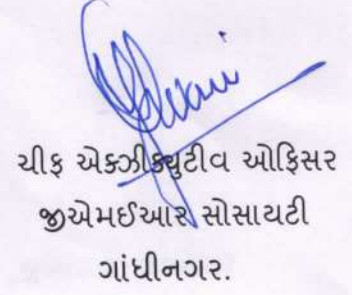 ચીફ એક્ઝીક્યુટીવ ઓફિસર
જીએમઈઆર સોસાયટી
ગાંધીનગર.